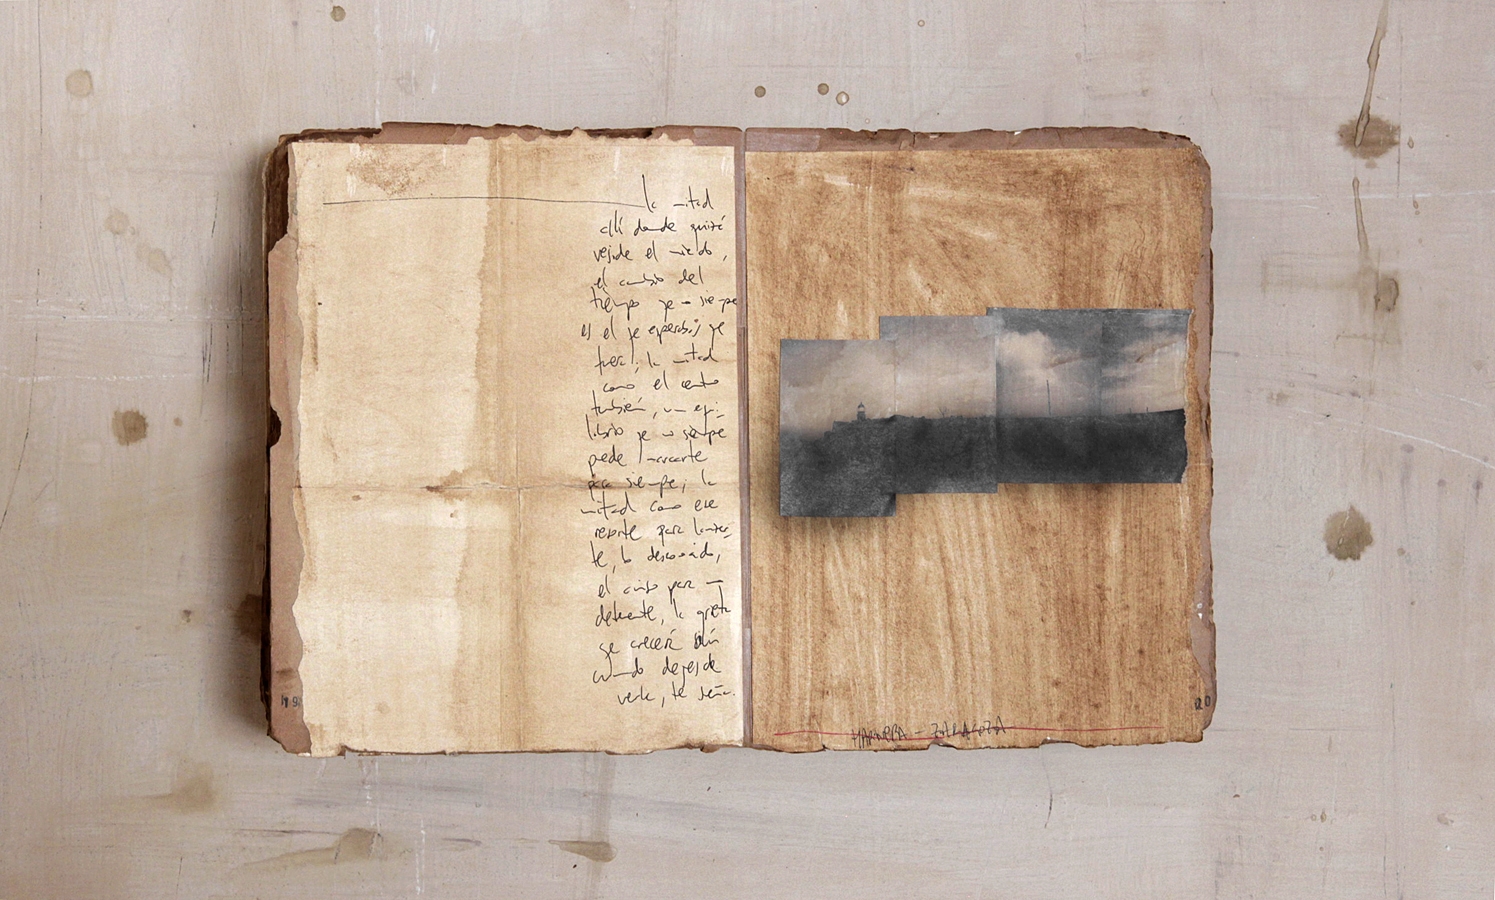 la mitad
allí donde quizá
reside el miedo,
el cambio del
tiempo que no siempre
es el que esperabas que
fuera; la mitad
como el centro
también, un equi-
librio que no siempre
puede marcarte
para siempre, la
mitad como ese
resorte para lanzar-
te, lo desconocido,
el cruce para
detenerte, la grieta
que crecerá aún
cuando dejes de
verla, te
19
20
MARINERA - ZARAGOZA